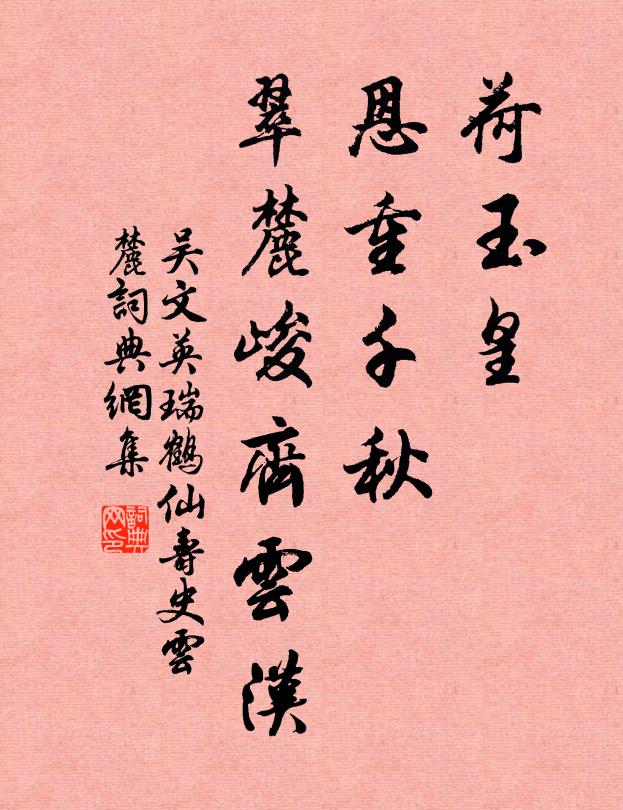 荷玉皇
恩重千秋
翠麓峻齊雲漢
吴文英瑞鶴仙壽史雲
麓詞典網集
詞典
网印